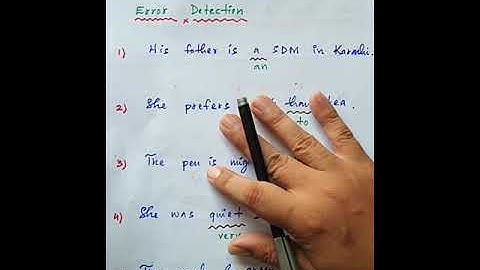 Error Detection
1) His father is a SDM in Karachi.
an
2) She prefers than tea.
to
3) The pen is
4) She was quiet
very